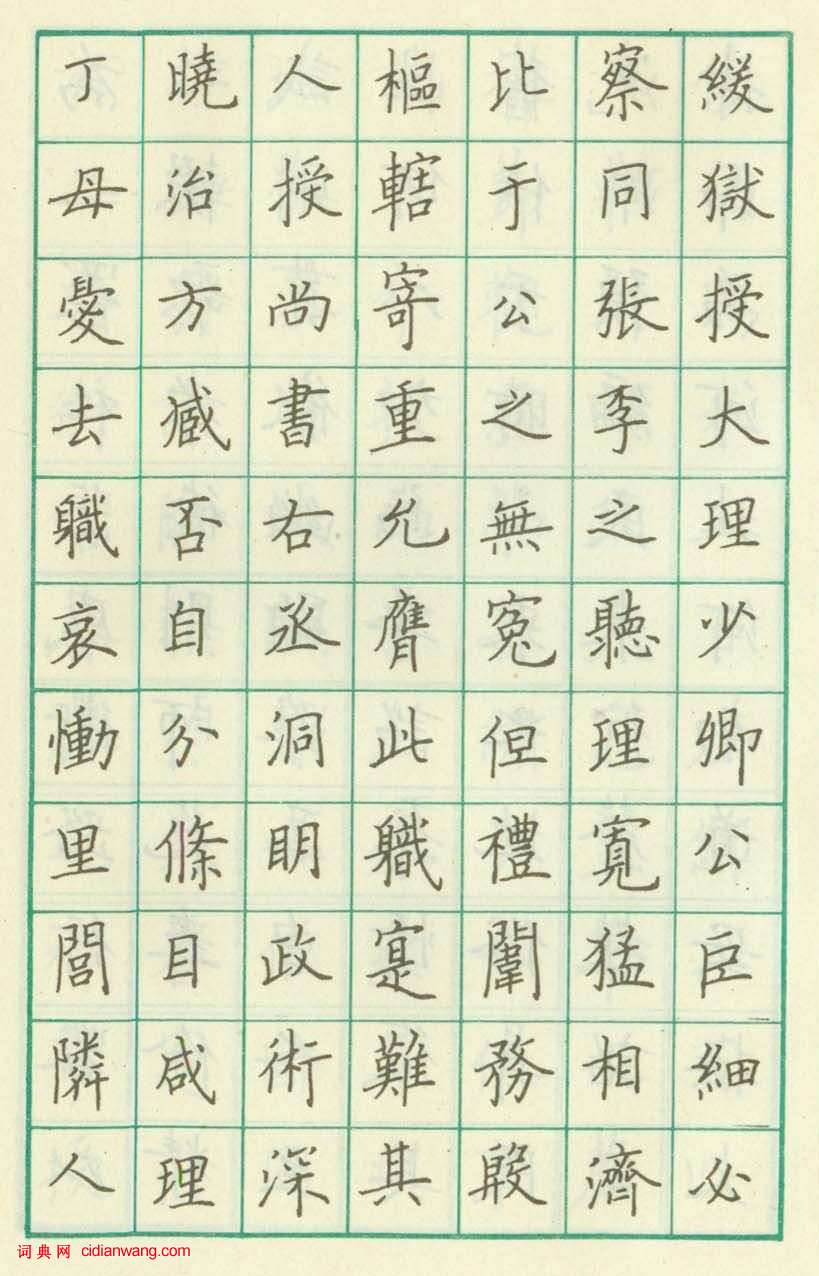 緩獄授大理少卿公巨細必
察同張李之聽理寬猛相濟
比于公之無寃但禮闈務殷
樞轄寄重允膺此職寔難其
人授尚書右丞洞明政術深
曉治方臧否自分條目咸理
丁母憂去職哀慟里閭隣人
词典网 cidianwang.com